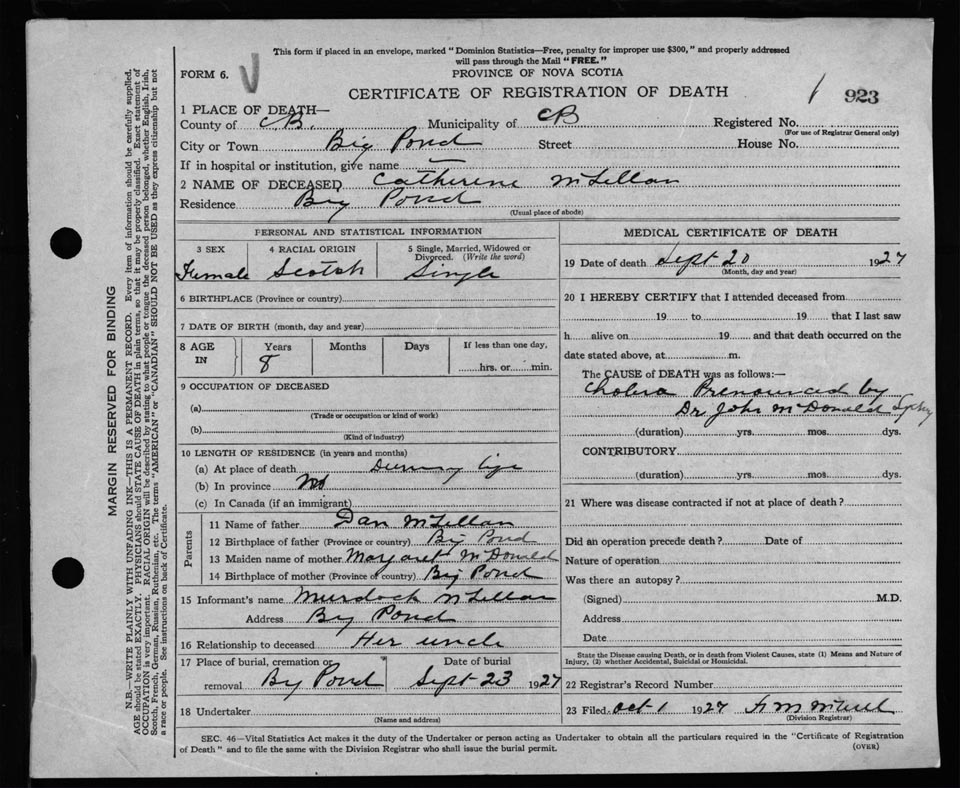 This form if placed in an envelope, marked "Dominion Statistics—Free, penalty for improper use $300," and properly addressed
will pass through the Mail "FREE."
FORM 6. V
PROVINCE OF NOVA SCOTIA
CERTIFICATE OF REGISTRATION OF DEATH
1 923
1 PLACE OF DEATH—
County of C.B. Municipality of CB Registered No.
(For use of Registrar General only)
City or Town Big Pond Street House No.
If in hospital or institution, give name —
2 NAME OF DECEASED Catherine McLellan
Residence Big Pond
(Usual place of abode)
PERSONAL AND STATISTICAL INFORMATION
3 SEX 4 RACIAL ORIGIN 5 Single, Married, Widowed or
Divorced. (Write the word)
Female Scotch Single
6 BIRTHPLACE (Province or country)
7 DATE OF BIRTH (month, day and year)
8 AGE IN Years Months Days If less than one day,
8 hrs. or min.
9 OCCUPATION OF DECEASED
(a)
(Trade or occupation or kind of work)
(b)
(Kind of industry)
10 LENGTH OF RESIDENCE (in years and months)
(a) At place of death During life
(b) In province
(c) In Canada (if an immigrant)
Parents
11 Name of father Dan McLellan
12 Birthplace of father (Province or country) Big Pond
13 Maiden name of mother Margaret McDonald
14 Birthplace of mother (Province or country) Big Pond
15 Informant's name Murdock McLellan
Address Big Pond
16 Relationship to deceased Her uncle
17 Place of burial, cremation or Date of burial
removal Big Pond Sept 23 1927
18 Undertaker
(Name and address)
MEDICAL CERTIFICATE OF DEATH
19 Date of death Sept 20 1927
(Month, day and year)
20 I HEREBY CERTIFY that I attended deceased from
19 to 19 that I last saw
h alive on 19 and that death occurred on the
date stated above, at m.
The CAUSE of DEATH was as follows:—
Cholera Prenounced by
Dr. John McDonald
(duration) yrs. mos. dys.
CONTRIBUTORY
(duration) yrs. mos. dys.
21 Where was disease contracted if not at place of death?
Did an operation precede death? Date of
Nature of operation
Was there an autopsy?
(Signed) M.D.
Address
Date
State the Disease causing Death, or in death from Violent Causes, state (1) Means and Nature of
Injury, (2) whether Accidental, Suicidal or Homicidal.
22 Registrar's Record Number
23 Filed Oct 1 1927
(Division Registrar)
SEC. 46—Vital Statistics Act makes it the duty of the Undertaker or person acting as Undertaker to obtain all the particulars required in the "Certificate of Registration
of Death" and to file the same with the Division Registrar who shall issue the burial permit.
(OVER)
MARGIN RESERVED FOR BINDING
N.B.—WRITE PLAINLY WITH UNFADING INK—THIS IS A PERMANENT RECORD. Every item of information should be carefully supplied.
AGE should be stated EXACTLY. PHYSICIANS should STATE CAUSE OF DEATH in plain terms, so that it may be properly classified. Exact statement of
OCCUPATION is very important. RACIAL ORIGIN will be described by stating to what people or tongue the deceased person belonged, whether English, Irish,
Scotch, French, German, Russian, Ruthenian, etc. The terms "AMERICAN" or "CANADIAN" SHOULD NOT BE USED as they express citizenship but not
a race or people. See instructions on back of Certificate.